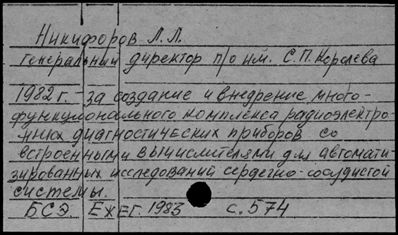 Никифоров Л.Л.
генеральный директор п/о им. С.П. Королева
1982 г. - за создание и внедрение много-
функционального комплекса радиоэлектро-
нных диагностических приборов со
встроенными вычислителями для автомати-
зированных исследований сердечно-сосудистой
системы.
БСЭ. Ежег. 1983 с. 574